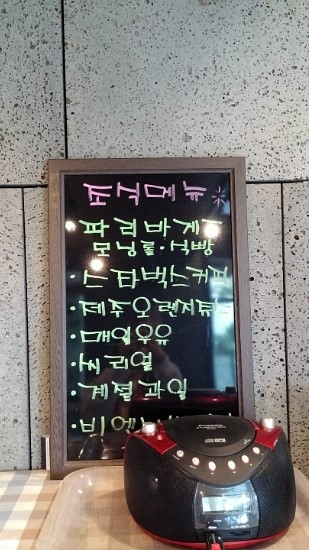 조식메뉴
파리바게
모닝롤·식빵
·스타벅스커피
·제주오렌지쥬스
·매일우유
·씨리얼
·계절과일